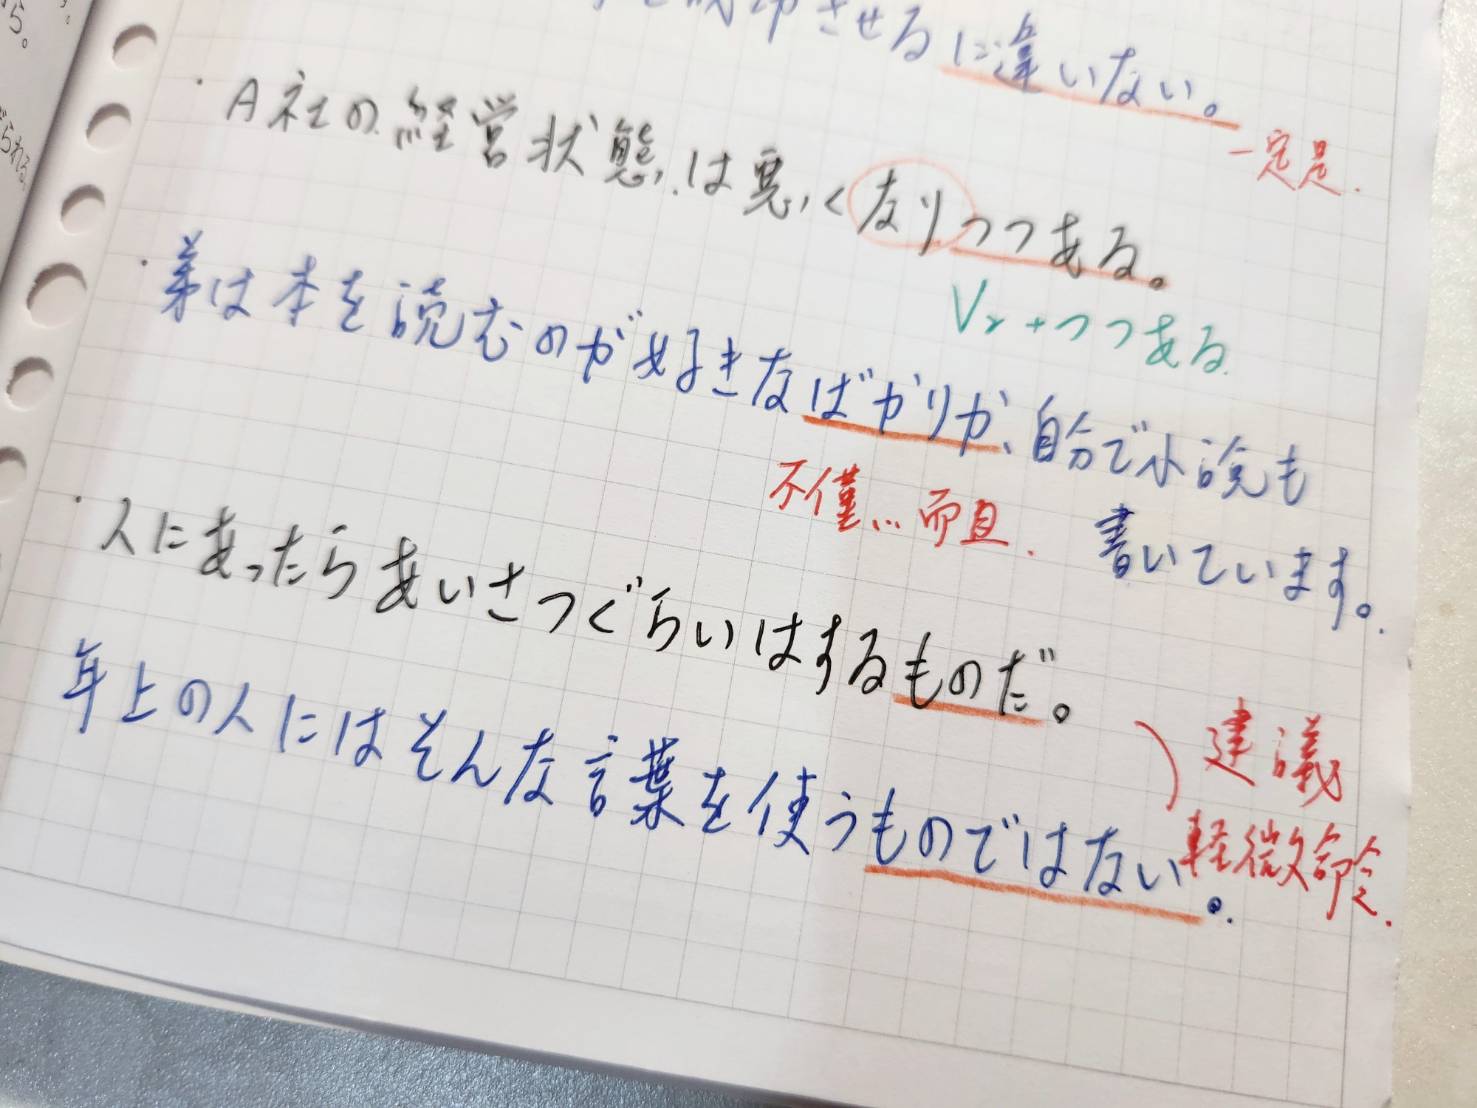 させるに違いない。
一定是.
・A社の経営状態は悪くなりつつある。
Vr+つつある
・弟は本を読むのが好きなばかりか、自分で小説も
不僅…而且.
書いています。
・人にあったらあいさつぐらいはするものだ。
年上の人にはそんな言葉を使うものではない。
建議
軽微命令.